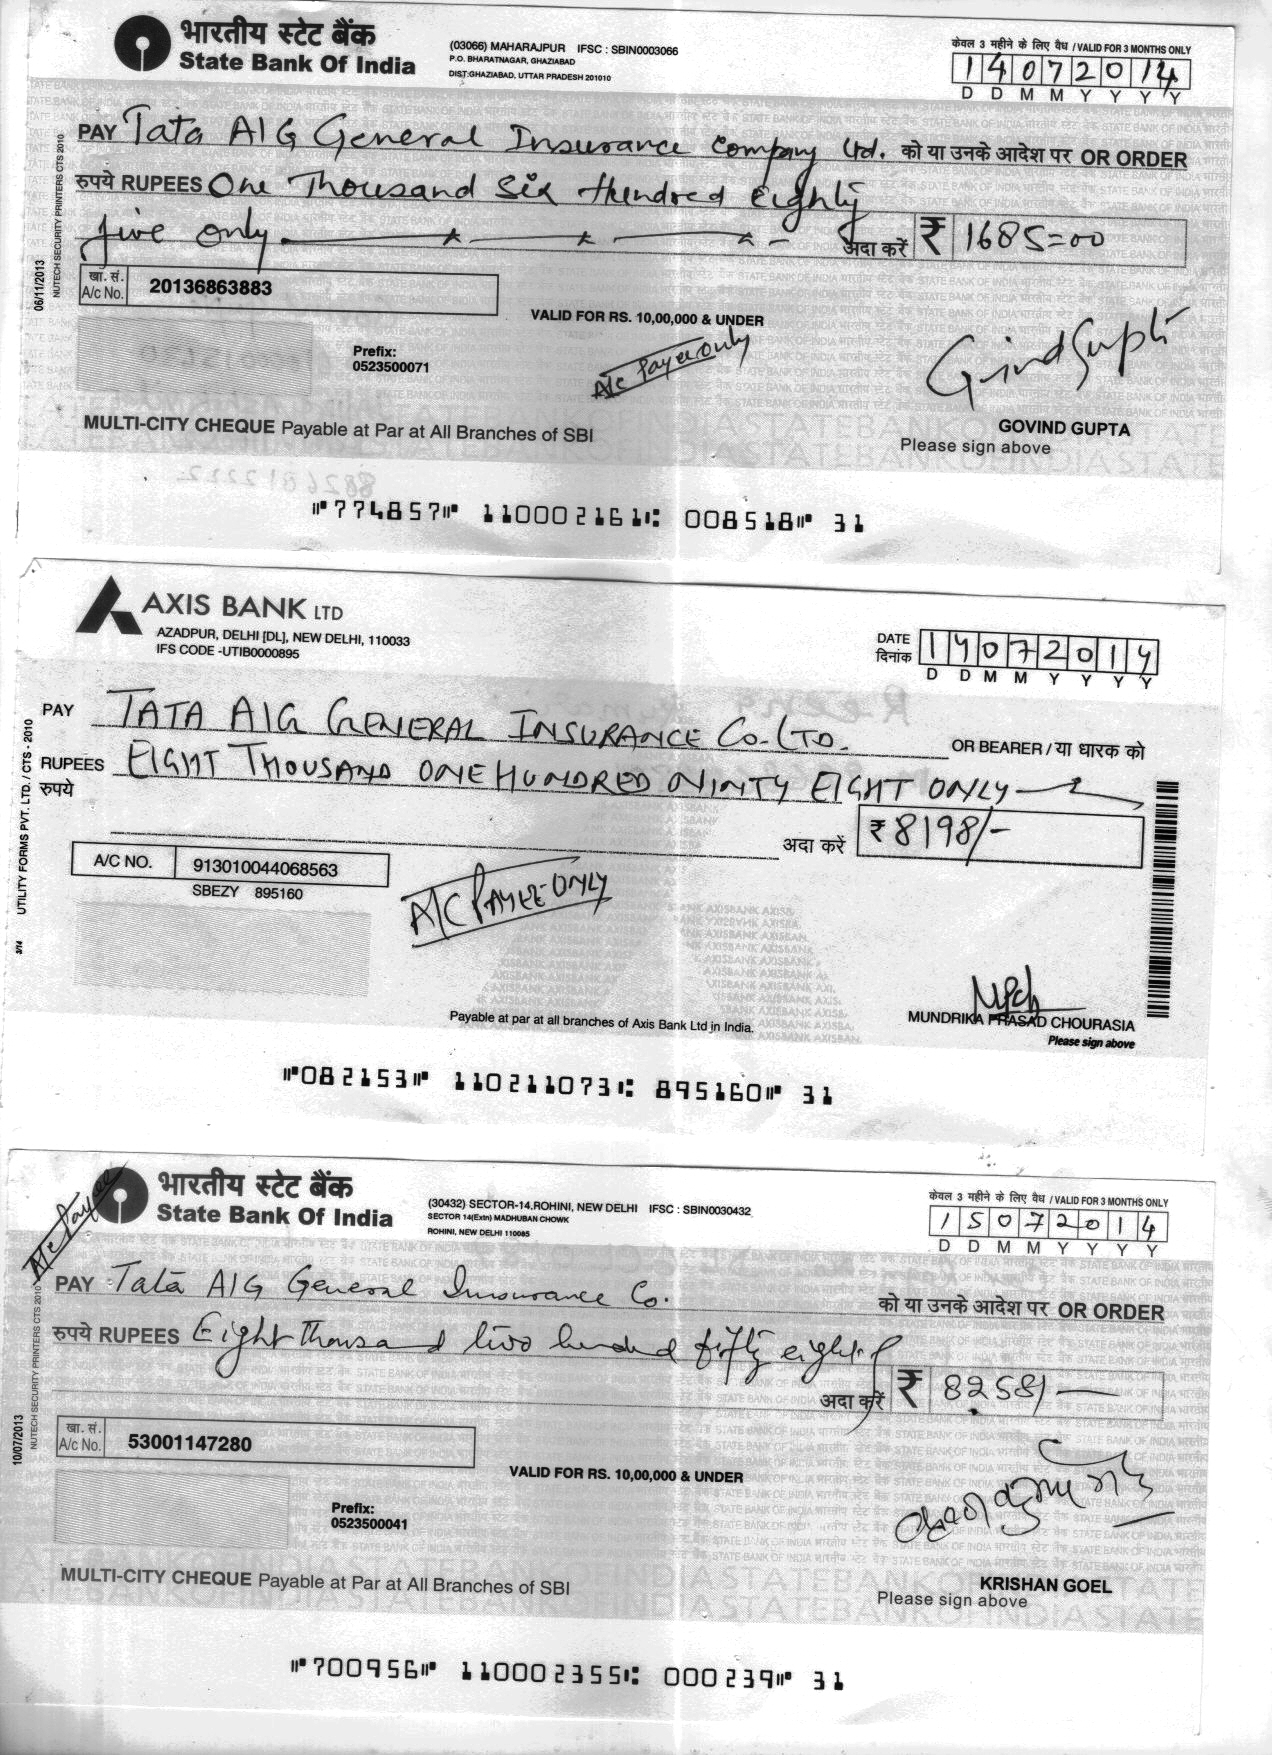 भारतीय स्टेट बैंक
State Bank Of India
(03066) MAHARAJPUR IFSC : SBIN0003066
P.O. BHARATNAGAR, GHAZIABAD
DIST:GHAZIABAD, UTTAR PRADESH 201010
केवल 3 महीने के लिए वैध / VALID FOR 3 MONTHS ONLY
14072014
D D M M Y Y Y Y
PAY Tata AIG General Insurance Company Ltd. को या उनके आदेश पर OR ORDER
रुपये RUPEES One Thousand Six Hundred Eighty
five only अदा करें ₹ 1685=00
खा. सं.
A/c No. 20136863883
VALID FOR RS. 10,00,000 & UNDER
Prefix:
0523500071
A/c Payee Only
Govind Gupta
MULTI-CITY CHEQUE Payable at Par at All Branches of SBI
GOVIND GUPTA
Please sign above
06/11/2013
NUTECH SECURITY PRINTERS CTS 2010
⑈774857⑈ 110002161⑆ 008518⑈ 31
AXIS BANK LTD
AZADPUR, DELHI [DL], NEW DELHI, 110033
IFS CODE -UTIB0000895
DATE
दिनांक 14072014
D D M M Y Y Y Y
PAY TATA AIG GENERAL INSURANCE CO. LTD. OR BEARER / या धारक को
RUPEES EIGHT THOUSAND ONE HUNDRED NINTY EIGHT ONLY
रुपये
अदा करें ₹ 8198/-
A/C NO. 913010044068563
SBEZY 895160
A/C PAYEE ONLY
UTILITY FORMS PVT. LTD. / CTS - 2010
3/14
Payable at par at all branches of Axis Bank Ltd in India.
MUNDRIKA PRASAD CHOURASIA
Please sign above
⑈082153⑈ 110211073⑆ 895160⑈ 31
A/c Payee
भारतीय स्टेट बैंक
State Bank Of India
(30432) SECTOR-14,ROHINI, NEW DELHI IFSC : SBIN0030432
SECTOR 14(Extn) MADHUBAN CHOWK
ROHINI, NEW DELHI 110085
केवल 3 महीने के लिए वैध / VALID FOR 3 MONTHS ONLY
15072014
D D M M Y Y Y Y
PAY Tata AIG General Insurance Co. को या उनके आदेश पर OR ORDER
रुपये RUPEES Eight thousand two hundred fifty eight
अदा करें ₹ 8258/-
खा. सं.
A/c No. 53001147280
VALID FOR RS. 10,00,000 & UNDER
Prefix:
0523500041
MULTI-CITY CHEQUE Payable at Par at All Branches of SBI
KRISHAN GOEL
Please sign above
10/07/2013
NUTECH SECURITY PRINTERS CTS 2010
⑈700956⑈ 110002355⑆ 000239⑈ 31